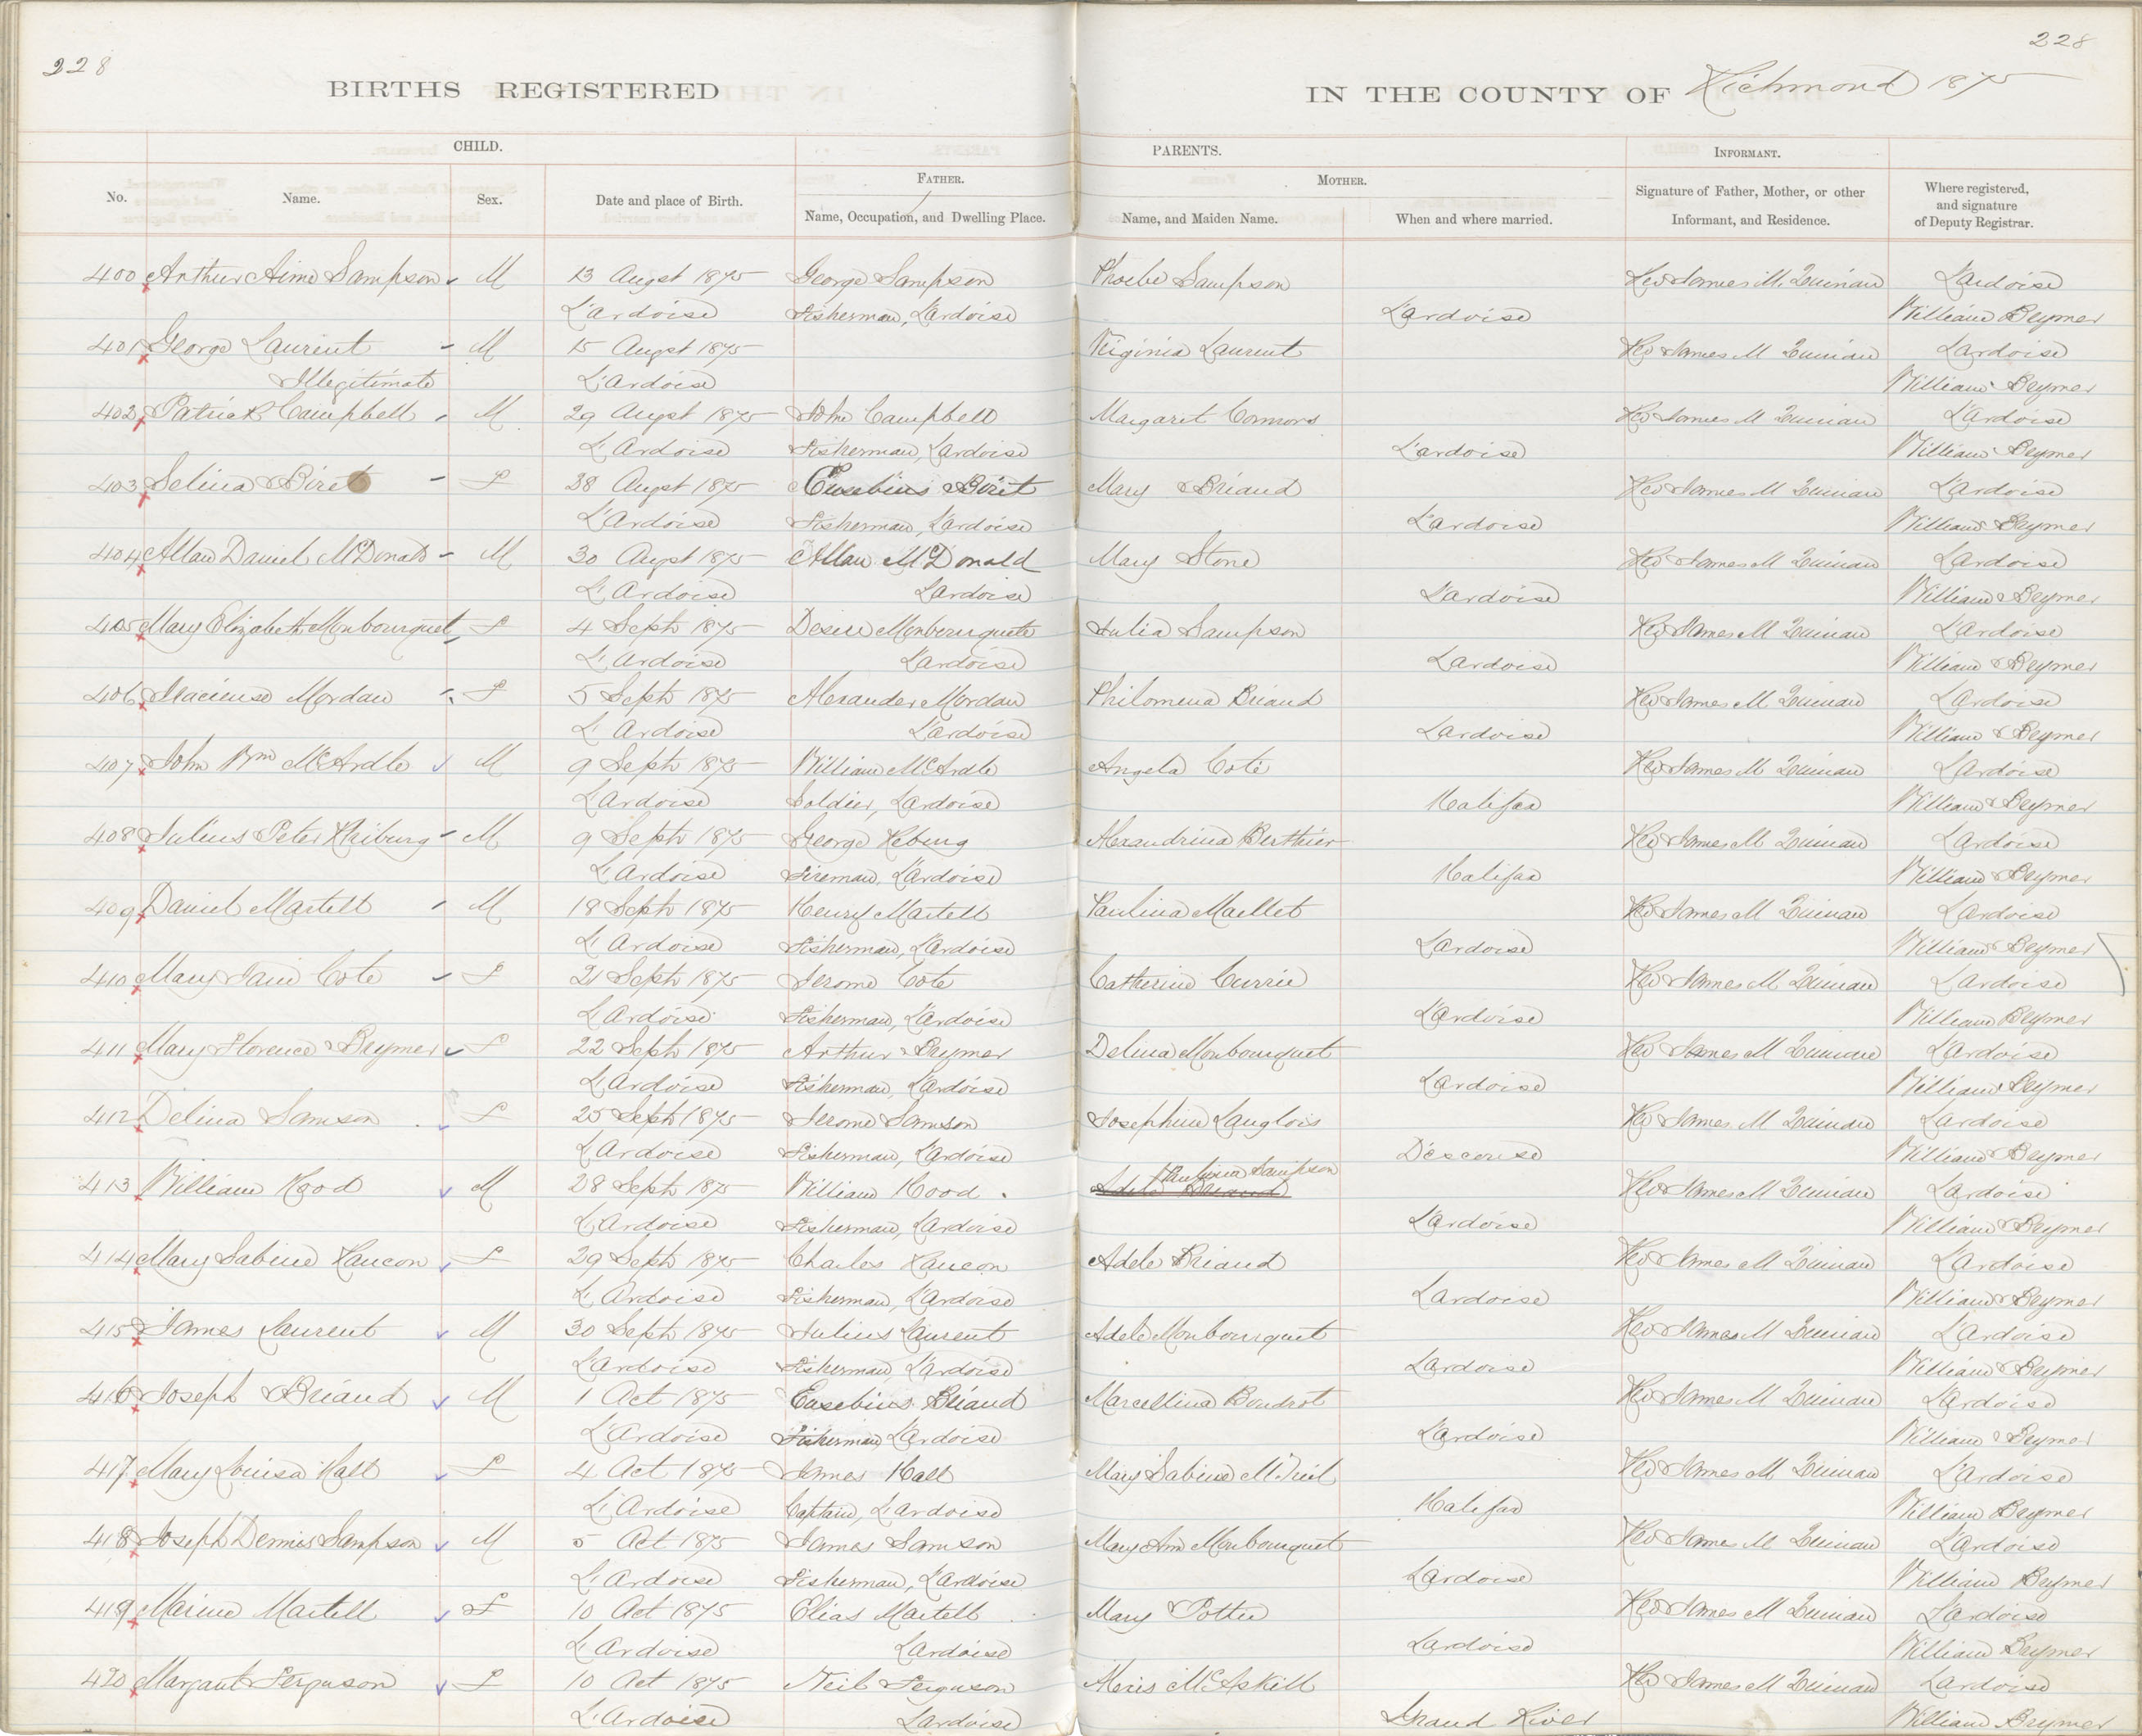 228
228
BIRTHS REGISTERED IN THE COUNTY OF Richmond 1875
CHILD. PARENTS. INFORMANT.
No. Name. Sex. Date and place of Birth. FATHER. Name, Occupation, and Dwelling Place. MOTHER. Name, and Maiden Name. When and where married. Signature of Father, Mother, or other Informant, and Residence. Where registered, and signature of Deputy Registrar.
400 Arthur Aime Sampson M 13 Augst 1875 George Sampson Phoebe Sampson Rev James M. Quinan L'ardoise
L'ardoise Fisherman, L'ardoise L'ardoise William Beymer
401 George Laurent M 15 Augst 1875 Virginia Laurent Rev James M Quinan L'ardoise
Illegitimate L'Ardoise William Beymer
402 Patrick Campbell M 29 Augst 1875 John Campbell Margaret Connors Rev James M Quinan L'ardoise
L'Ardoise Fisherman, L'ardoise L'ardoise William Beymer
403 Selina Biret F 28 Augst 1875 Eusebius Boirt Mary Briand Rev James M Quinan L'ardoise
L'Ardoise Fisherman, L'ardoise L'ardoise William Beymer
404 Allan Daniel McDonald M 30 Augst 1875 Allan McDonald Mary Stone Rev James M Quinan L'ardoise
L'Ardoise L'ardoise L'ardoise William Beymer
405 Mary Elizabeth Monbourquet F 4 Septr 1875 Desire Monbourquete Julia Sampson Rev James M Quinan L'ardoise
L'Ardoise L'ardoise L'ardoise William Beymer
406 Mordan F 5 Septr 1875 Alexander Mordan Philomena Briand Rev James M Quinan L'ardoise
L'Ardoise L'ardoise L'ardoise William Beymer
407 John Wm McArdle M 9 Septr 1875 William McArdle Angela Coté Rev James M Quinan L'ardoise
L'Ardoise Soldier, L'ardoise Halifax William Beymer
408 Julius Peter M 9 Septr 1875 George Alexandrina Berthier Rev James M Quinan L'ardoise
L'Ardoise Fireman, L'ardoise Halifax William Beymer
409 Daniel Martell M 18 Septr 1875 Henry Martell Paulina Maillet Rev James M Quinan L'ardoise
L'Ardoise Fisherman, L'ardoise L'ardoise William Beymer
410 Mary Jane Cote F 21 Septr 1875 Jerome Cote Catherine Currie Rev James M Quinan L'ardoise
L'Ardoise Fisherman, L'ardoise L'ardoise William Beymer
411 Mary Florence Beymer F 22 Septr 1875 Arthur Beymer Delina Monbourquet Rev James M Quinan L'ardoise
L'Ardoise Fisherman, L'ardoise L'ardoise William Beymer
412 Delina Samson F 25 Septr 1875 Jerome Samson Josephine Langlois Rev James M Quinan L'ardoise
L'Ardoise Fisherman, L'ardoise D'escouse William Beymer
413 William Hood M 28 Septr 1875 William Hood Adele Briand Paulina Sampson Rev James M Quinan L'ardoise
L'Ardoise Fisherman, L'ardoise L'ardoise William Beymer
414 Mary Sabine Rancon F 29 Septr 1875 Charles Rancon Adele Briand Rev James M Quinan L'ardoise
L'Ardoise Fisherman, L'ardoise L'ardoise William Beymer
415 James Laurent M 30 Septr 1875 Julius Laurent Adele Monbourquet Rev James M Quinan L'ardoise
L'ardoise Fisherman, L'ardoise L'ardoise William Beymer
416 Joseph Briand M 1 Oct 1875 Eusebius Briand Marcellina Boudrot Rev James M Quinan L'ardoise
L'Ardoise Fisherman L'ardoise L'ardoise William Beymer
417 Mary Louisa Hall F 4 Oct 1875 James Hall Mary Sabine Rev James M Quinan L'ardoise
L'Ardoise Captain, L'ardoise Halifax William Beymer
418 Joseph Dennis Sampson M 5 Oct 1875 James Samson Mary Ann Monbourquet Rev James M Quinan L'ardoise
L'Ardoise Fisherman, L'ardoise L'ardoise William Beymer
419 Martell F 10 Oct 1875 Elias Martell Mary Pottie Rev James M Quinan L'ardoise
L'Ardoise L'ardoise L'ardoise William Beymer
420 Margaret Ferguson F 10 Oct 1875 Neil Ferguson McAskill Rev James M Quinan L'ardoise
L'Ardoise L'ardoise Grand River William Beymer